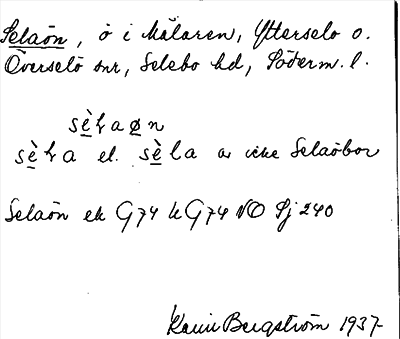 Selaön, ö i Mälaren, Ytterselo o.
Överselö snr, Selebo hd, Söderm. l.
sèłaøn
sèła el. sèla av icke Selaöbor
Selaön ek G74 k G74 NO Sj 240
Karin Bergström 1937-